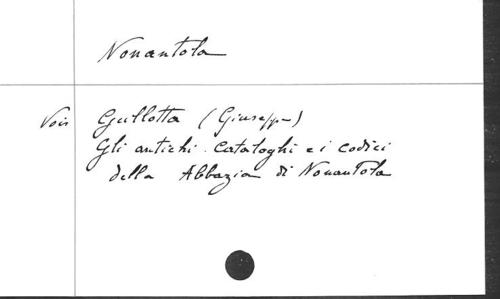 Nonantola
Voir Gullotta (Giuseppe)
Gli antichi cataloghi e i codici
della Abbazia di Nonantola